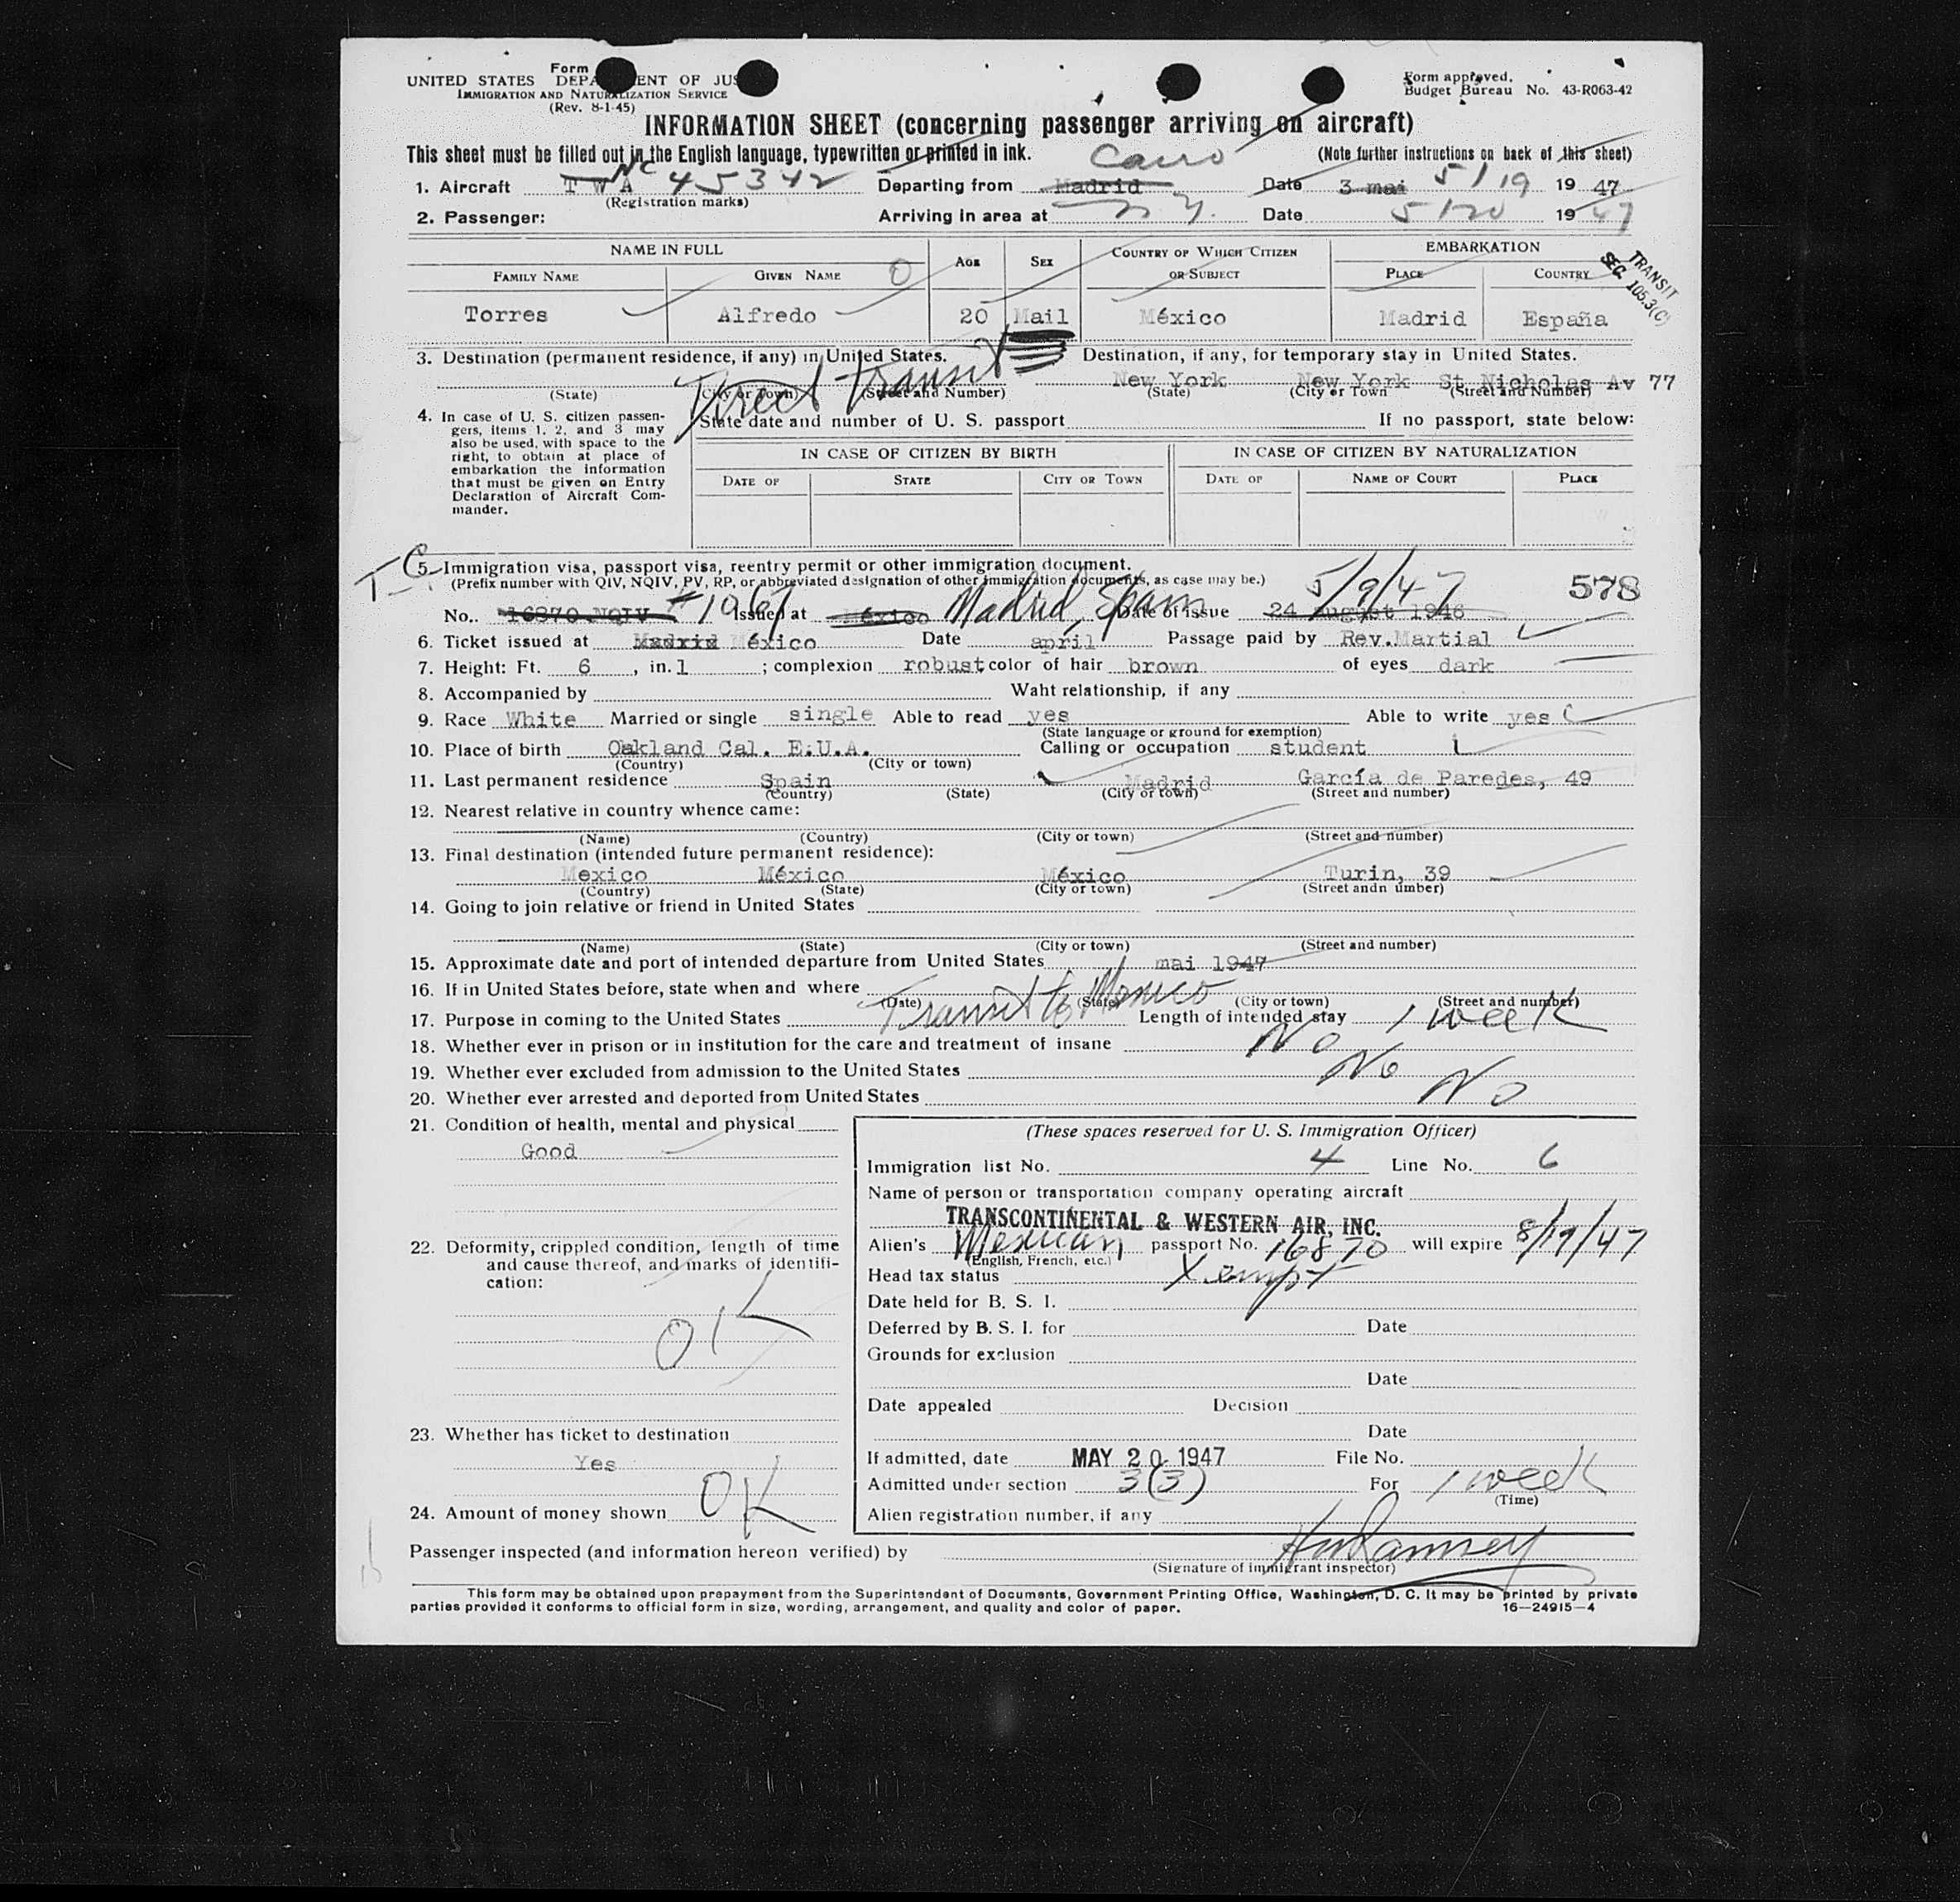 Form
UNITED STATES DEPA ENT OF JUS
IMMIGRATION AND NATURALIZATION SERVICE
(Rev. 8-1-45)
Form approved.
Budget Bureau No. 43-R063-42
INFORMATION SHEET (concerning passenger arriving on aircraft)
This sheet must be filled out in the English language, typewritten or printed in ink. (Note further instructions on back of this sheet)
Cairo
1. Aircraft TWA NC 45342 Departing from Madrid Date 3 mai 5/19 19 47
(Registration marks)
2. Passenger: Arriving in area at N.Y. Date 5/20 19 47
NAME IN FULL AGE SEX COUNTRY OF WHICH CITIZEN OR SUBJECT EMBARKATION
FAMILY NAME GIVEN NAME O PLACE COUNTRY
TRANSIT
SEC. 105.3(C)
Torres Alfredo 20 Mail México Madrid España
3. Destination (permanent residence, if any) in United States. Destination, if any, for temporary stay in United States.
Direct transit New York New York St Nicholas Av 77
(State) (City or Town) (Street and Number) (State) (City or Town (Street and Number)
4. In case of U. S. citizen passen-
gers, items 1, 2, and 3 may
also be used, with space to the
right, to obtain at place of
embarkation the information
that must be given on Entry
Declaration of Aircraft Com-
mander.
State date and number of U. S. passport If no passport, state below:
IN CASE OF CITIZEN BY BIRTH IN CASE OF CITIZEN BY NATURALIZATION
DATE OF STATE CITY OR TOWN DATE OF NAME OF COURT PLACE
5. Immigration visa, passport visa, reentry permit or other immigration document.
(Prefix number with QIV, NQIV, PV, RP, or abbreviated designation of other immigration documents, as case may be.) 5/9/47 578
No.. 16870 NQIV #1967 Issued at México Madrid, Spain Date of issue 24 august 1946
6. Ticket issued at Madrid México Date april Passage paid by Rev.Martial
7. Height: Ft. 6 , in. 1 ; complexion robust color of hair brown of eyes dark
8. Accompanied by Waht relationship, if any
9. Race White Married or single single Able to read yes Able to write yes
(State language or ground for exemption)
10. Place of birth Oakland Cal. E.U.A. Calling or occupation student
(Country) (City or town)
11. Last permanent residence Spain Madrid García de Paredes, 49
(Country) (State) (City or town) (Street and number)
12. Nearest relative in country whence came:
(Name) (Country) (City or town) (Street and number)
13. Final destination (intended future permanent residence):
Mexico México México Turin, 39
(Country) (State) (City or town) (Street andn umber)
14. Going to join relative or friend in United States
(Name) (State) (City or town) (Street and number)
15. Approximate date and port of intended departure from United States mai 1947
16. If in United States before, state when and where
(Date) (State) (City or town) (Street and number)
17. Purpose in coming to the United States Transit to Mexico Length of intended stay 1 week
18. Whether ever in prison or in institution for the care and treatment of insane No
19. Whether ever excluded from admission to the United States No
20. Whether ever arrested and deported from United States No
21. Condition of health, mental and physical
Good
22. Deformity, crippled condition, length of time
and cause thereof, and marks of identifi-
cation:
OK
23. Whether has ticket to destination
Yes
24. Amount of money shown OK
(These spaces reserved for U. S. Immigration Officer)
Immigration list No. 4 Line No. 6
Name of person or transportation company operating aircraft
TRANSCONTINENTAL & WESTERN AIR, INC.
Alien's Mexican passport No. 16870 will expire 8/19/47
(English, French, etc.)
Head tax status Xempt
Date held for B. S. I.
Deferred by B. S. I. for Date
Grounds for exclusion
Date
Date appealed Decision
Date
If admitted, date MAY 20 1947 File No.
Admitted under section 3(3) For 1 week
(Time)
Alien registration number, if any
Passenger inspected (and information hereon verified) by
(Signature of immigrant inspector)
This form may be obtained upon prepayment from the Superintendent of Documents, Government Printing Office, Washington, D. C. It may be printed by private
parties provided it conforms to official form in size, wording, arrangement, and quality and color of paper. 16—24915-4